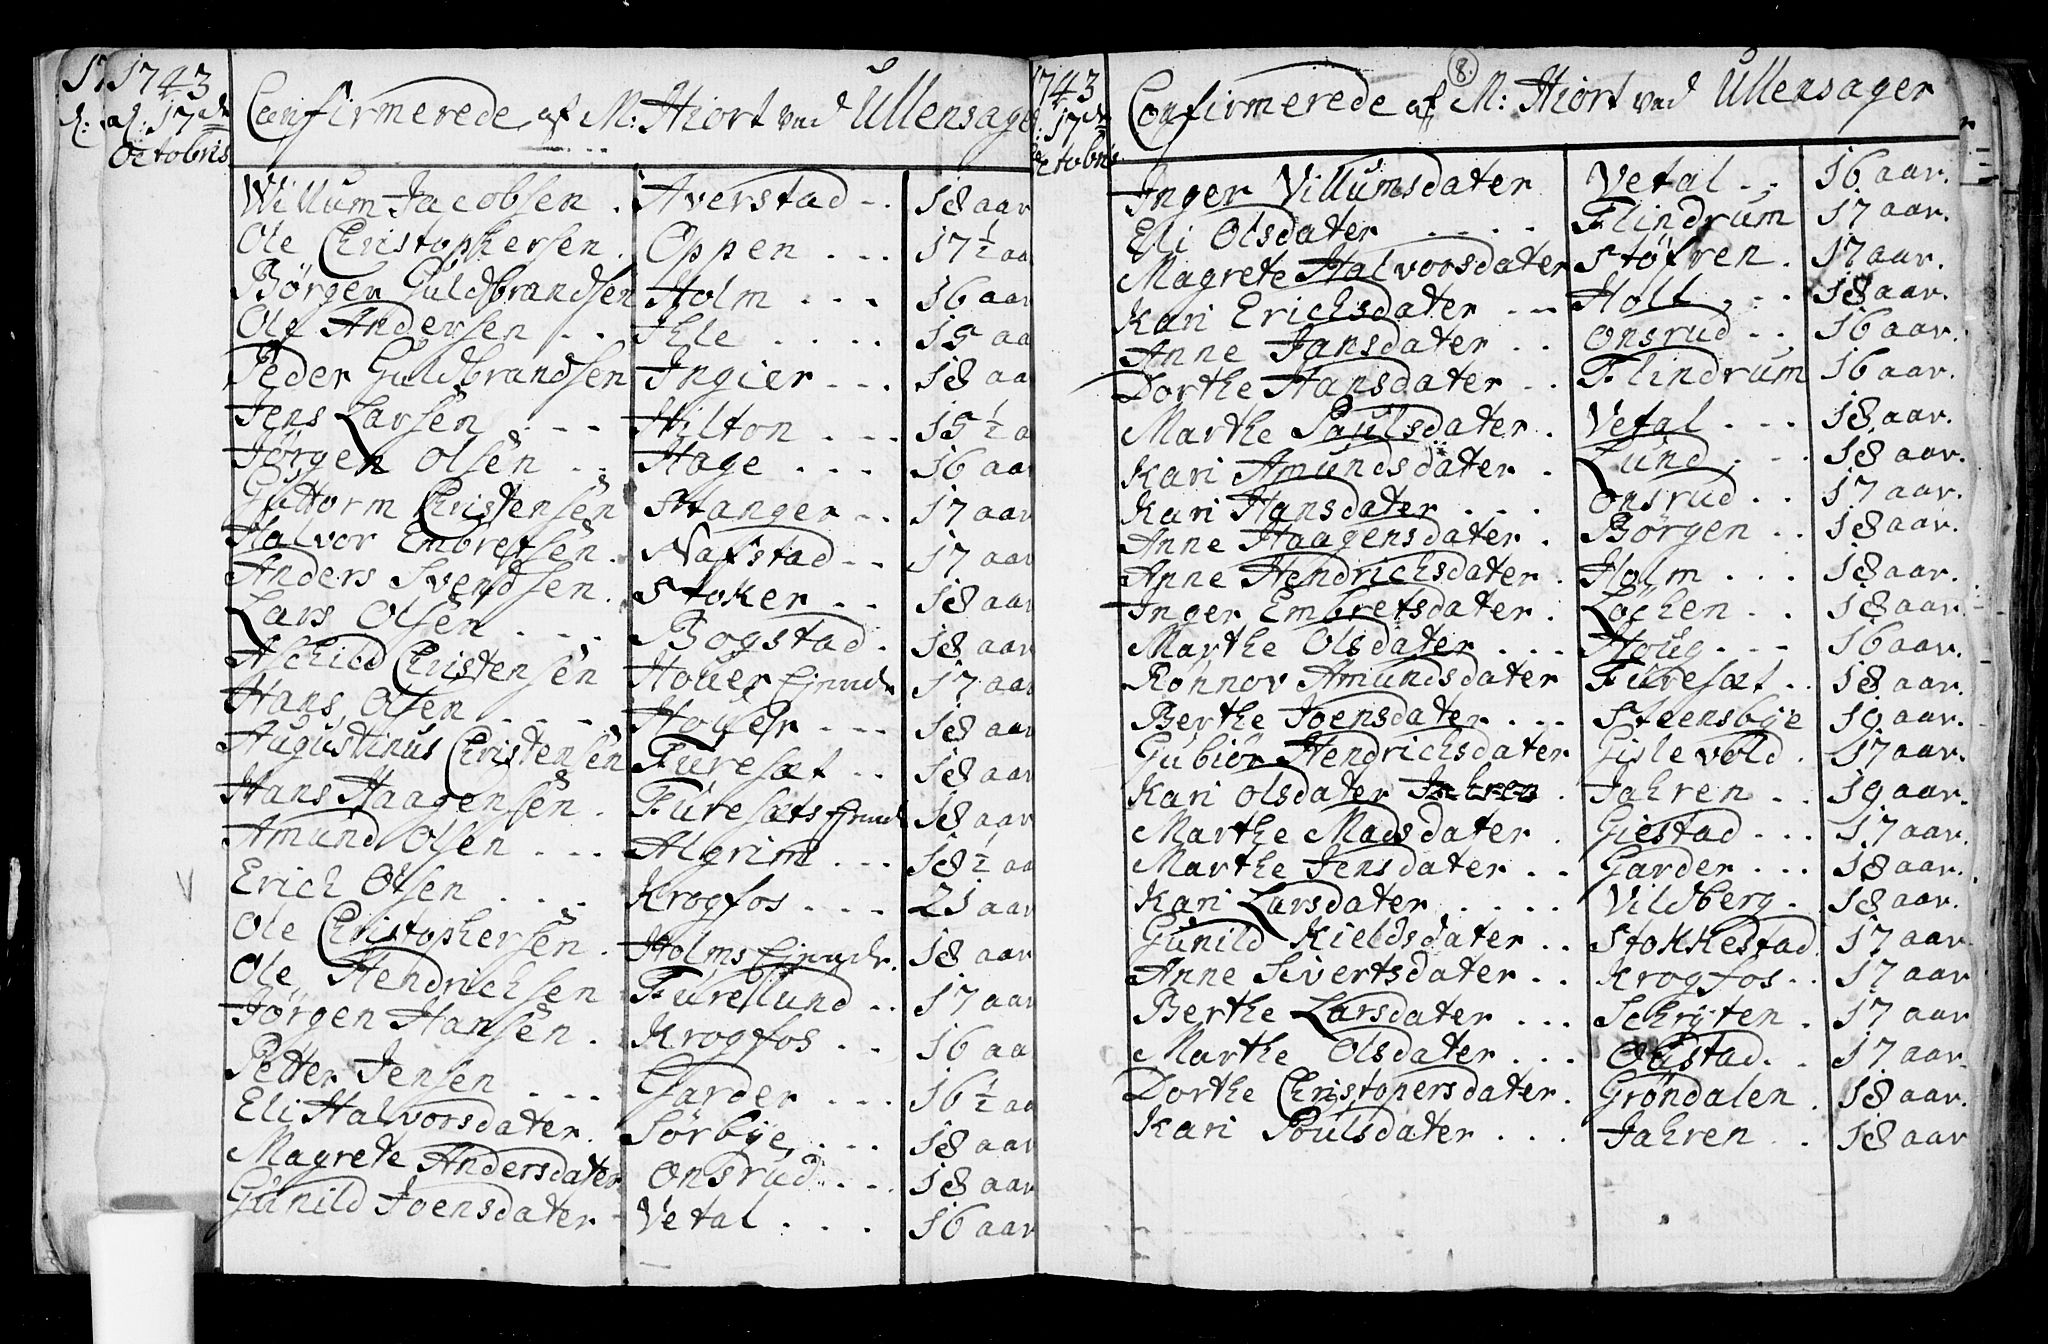 1743
d: 17de
Octobris
Confirmerede af M: Hiort ved Ullensager
Willum Jacobsen . Averstad - . 18 aar
Ole Christophersen . Oppen . . . 17 1/2 aa
Børger Guldbrandsen Holm . . . 16 aar
Ole Andersen . . Ihle . . . . 15 aa
Peder Guldbrandsen Ingier . . . 18 aa
Jens Larsen . . . Hilton . . . 15 1/2 a
Jørgen Olsen . . Hage . . . 16 aar
Guttorm Christensen Hanger . . 17 aar
Halvor Embretsen . Nafstad . . 17 aar
Anders Svendsen . Stoker . . 18 aar
Lars Olsen . . . Bogstad . 18 aar
Aschild Christensen Houer Ejende 17 aar
Hans Olsen . . . Houer . . . 18 aar
Augustinus Christensen Furesæt . . 18 aar
Hans Haagensen . Furesæts Ejende 18 aar
Amund Olsen . . . Algrim . . . 18 1/2 aa
Erich Olsen . . . . Krogfos . . . 21 aar
Ole Christophersen . Holms Ejende . 18 aar
Ole Hendrichsen Furellund . . 17 aar
Jørgen Hansen . Krogfos . . 16 aa
Petter Jensen . . . . Garder . . . 16 1/2 aa
Eli Halvorsdater . Sørbye . . . 18 aar
Magrete Andersdater Onsrud . . . 18 aar
Gunild Joensdater - Vetal . . . 16 aar
1743
: 17de
Octobris
8.
Confirmerede af M: Hiort ved Ullensager
Inger Villumsdater Vetal . . 16 aar.
Eli Olsdater . . . . Flindrum 17 aar.
Magrete Halvorsdater Støfren . 17 aar.
Kari Erichsdater . . . Holl . . . 18 aar.
Anne Jansdater . . Onsrud . . 16 aar.
Dorthe Hansdater . . Flindrum 16 aar.
Marthe Paulsdater . Vetal . . . 18 aar.
Kari Amundsdater . Lund . . . 18 aar.
Kari Hansdater . . . Onsrud . . 17 aar.
Anne Haagensdater . Børgen . . 18 aar.
Anne Hendrichsdater . Holm . . . 18 aar.
Inger Embretsdater . Løchen . . 18 aar.
Marthe Olsdater . . . Houg . . . 16 aar.
Rønnov Amundsdater Furesæt . . 18 aar.
Berthe Joensdater . . . Steensbye 19 aar.
Gubiør Hendrichsdater Gislevold . 17 aar.
Kari Olsdater . Jahren . . 19 aar.
Marthe Madsdater . Giestad . . . 17 aar.
Marthe Jensdater . . Garder . . . 18 aar.
Kari Larsdater . . . . Vildberg . 18 aar.
Gunild Kieldsdater . . Stokkestad 17 aar.
Anne Sivertsdater . . Krogfos . . 17 aar.
Berthe Larsdater . . . Schrÿten . 17 aar
Marthe Olsdater . . . Olstad . . 17 aar.
Dorthe Christopersdater . Grøndalen . 18 aar.
Kari Poulsdater . . . Jahren . . 18 aar